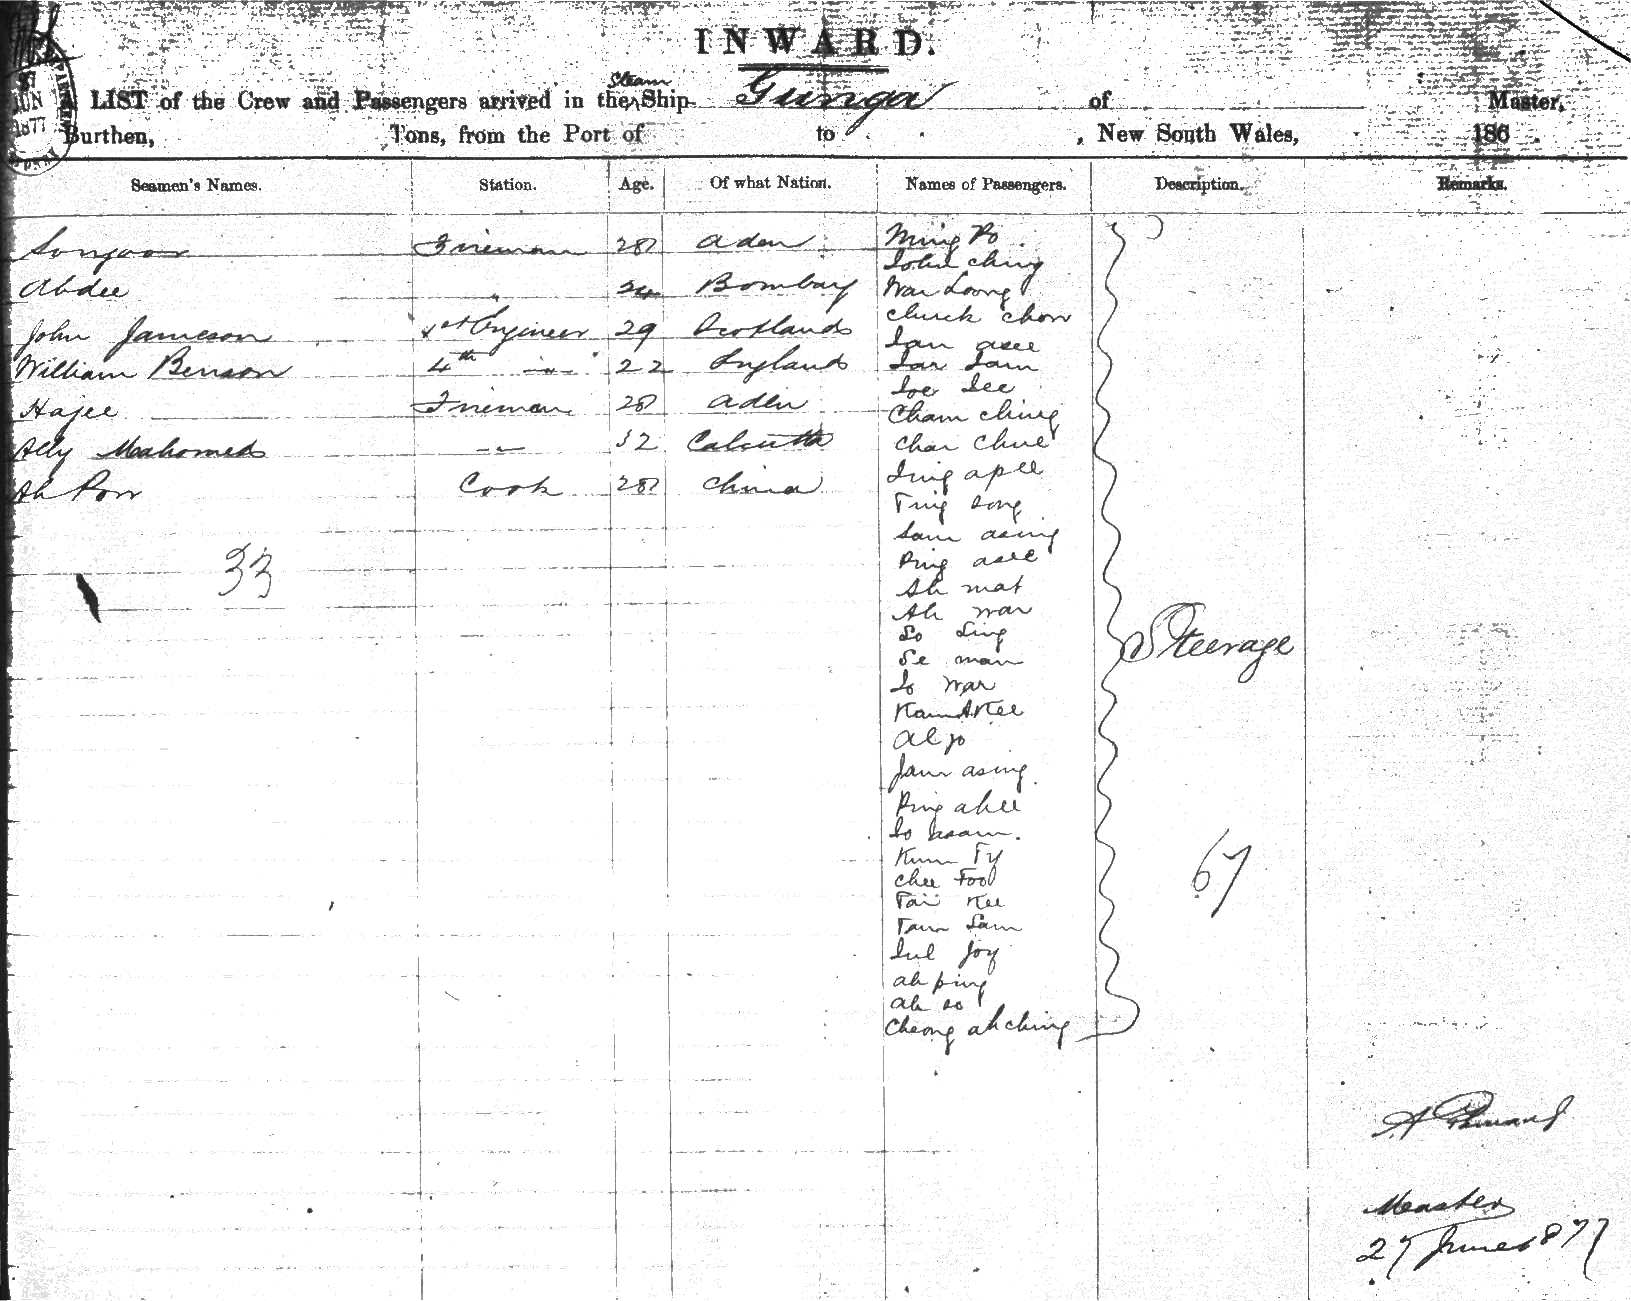 INWARD.
LIST of the Crew and Passengers arrived in the Steam Ship Gunga of Master,
Burthen, Tons, from the Port of to , New South Wales, 186 .
JUN
1877
Seamen's Names. Station. Age. Of what Nation. Names of Passengers. Description. Remarks.
Fireman 28 Aden Ming Po
John Ching
Abdee " 24 Bombay War Loong
Chuck Chow
John Jameson 1st Engineer 29 Scotland Sam asee
William Benson 4th -"- 22 England Sar Sam
Soe See
Hajee Fireman 28 Aden Cham Ching
Ally Mahomed -"- 32 Calcutta Char Chue
Ah Pow Cook 28 China Sing apee
Ting Song
Sam asing
Ping asee
33 Ah mat
Ah war
So Sing
Steerage
Se man
So war
Kam AKee
Al jo
Jam asing
Ping ahee
So
Kum Ty
67
Chee Foo
Tai Kee
Tam Sam
Sue Joy
ah ping
ah so
Cheong ah ching
A
Master
27 June 1877